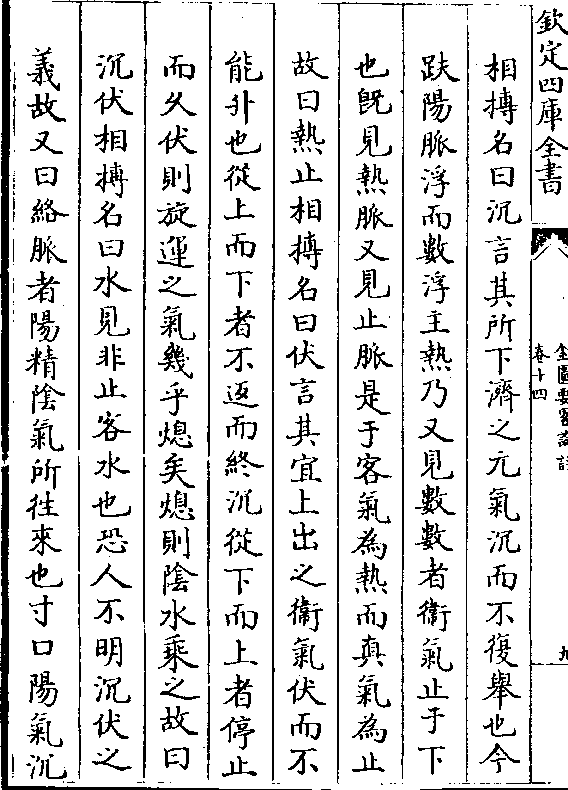 欽定四庫全書
金匱要略論註
卷十四
九
相搏名曰沉言其所下濟之元氣沉而不復舉也今
趺陽脈浮而數浮主熱乃又見數數者衞氣止于下
也既見熱脈又見止脈是于客氣為熱而真氣為止
故曰熱止相搏名曰伏言其宜上出之衞氣伏而不
能升也從上而下者不返而終沉從下而上者停止
而久伏則旋運之氣幾乎熄矣熄則陰水乘之故曰
沉伏相搏名曰水見非止客水也恐人不明沉伏之
義故又曰絡脈者陽精陰氣所往來也寸口陽氣沉